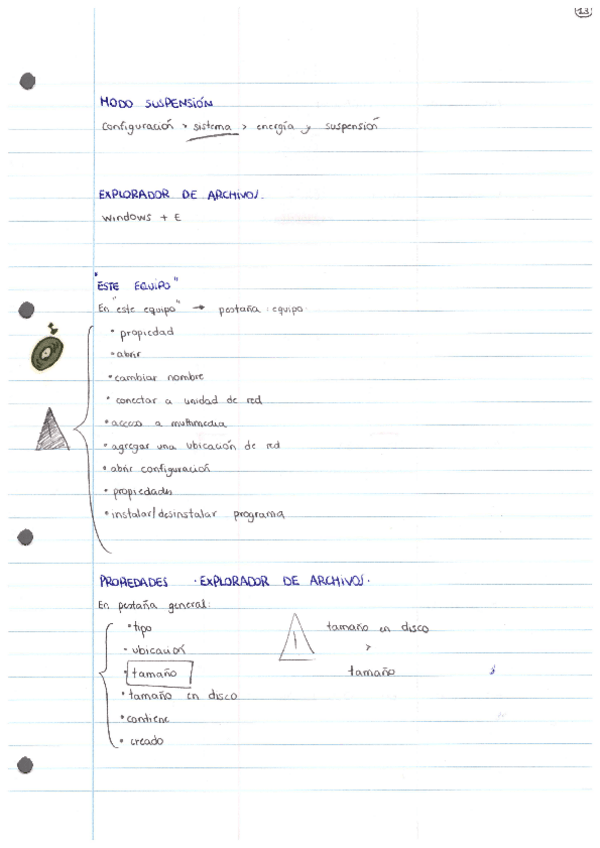 13
MODO SUSPENSIÓN
Configuración > sistema > energía y suspensión
EXPLORADOR DE ARCHIVOS.
Windows + E
"ESTE EQUIPO"
En "este equipo" → pestaña: equipo:
• propiedad
• abrir
• cambiar nombre
• conectar a unidad de red
• acceso a multimedia
• agregar una ubicación de red
• abrir configuración
• propiedades
• instalar/desinstalar programa
PROPIEDADES · EXPLORADOR DE ARCHIVOS.
En pestaña general:
• tipo
• ubicación
• tamaño
• tamaño en disco
• contiene
• creado
tamaño en disco
>
tamaño